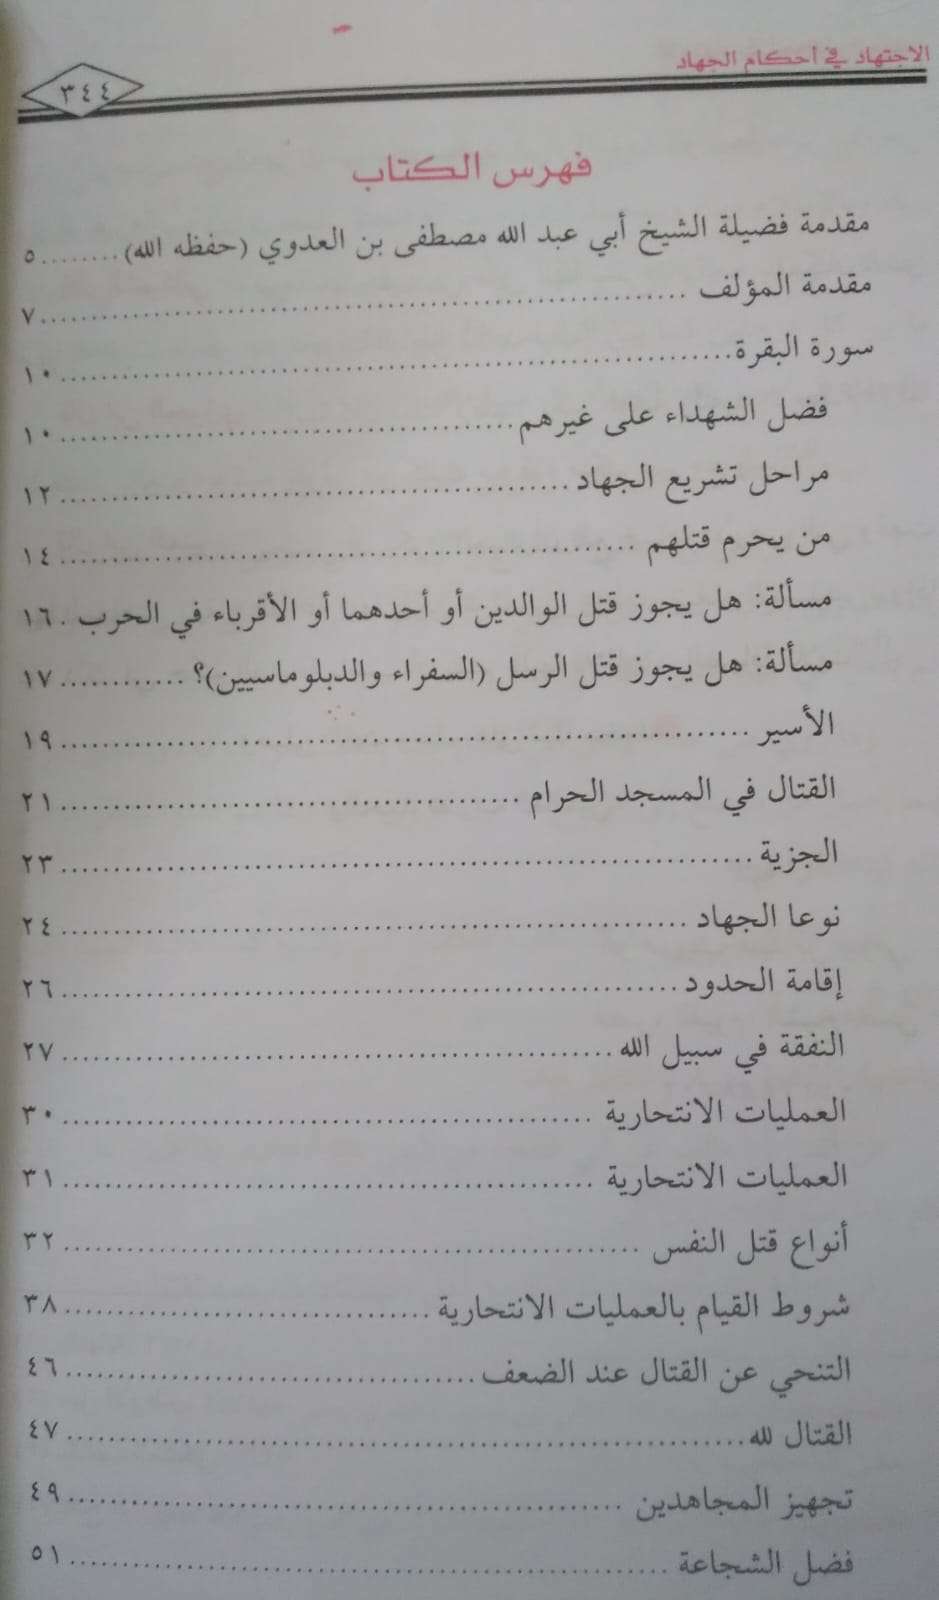 الاجتهاد في أحكام الجهاد
٣٤٤
فهرس الكتاب
مقدمة فضيلة الشيخ أبي عبد الله مصطفى بن العدوي (حفظه الله)........ ٥
مقدمة المؤلف ........................................................ ٧
سورة البقرة........................................................ ١٠
فضل الشهداء على غيرهم........................................ ١٠
مراحل تشريع الجهاد ............................................ ١٢
من يحرم قتلهم .................................................. ١٤
مسألة: هل يجوز قتل الوالدين أو أحدهما أو الأقرباء في الحرب . ١٦
مسألة: هل يجوز قتل الرسل (السفراء والدبلوماسيين)؟ ............ ١٧
الأسير ............................................................ ١٩
القتال في المسجد الحرام ........................................ ٢١
الجزية ............................................................ ٢٣
نوعا الجهاد ...................................................... ٢٤
إقامة الحدود ...................................................... ٢٦
النفقة في سبيل الله ................................................ ٢٧
العمليات الانتحارية .............................................. ٣٠
العمليات الانتحارية .............................................. ٣١
أنواع قتل النفس .................................................. ٣٢
شروط القيام بالعمليات الانتحارية ................................ ٣٨
التنحي عن القتال عند الضعف .................................... ٤٦
القتال لله............................................................ ٤٧
تجهيز المجاهدين .................................................. ٤٩
فضل الشجاعة ...................................................... ٥١